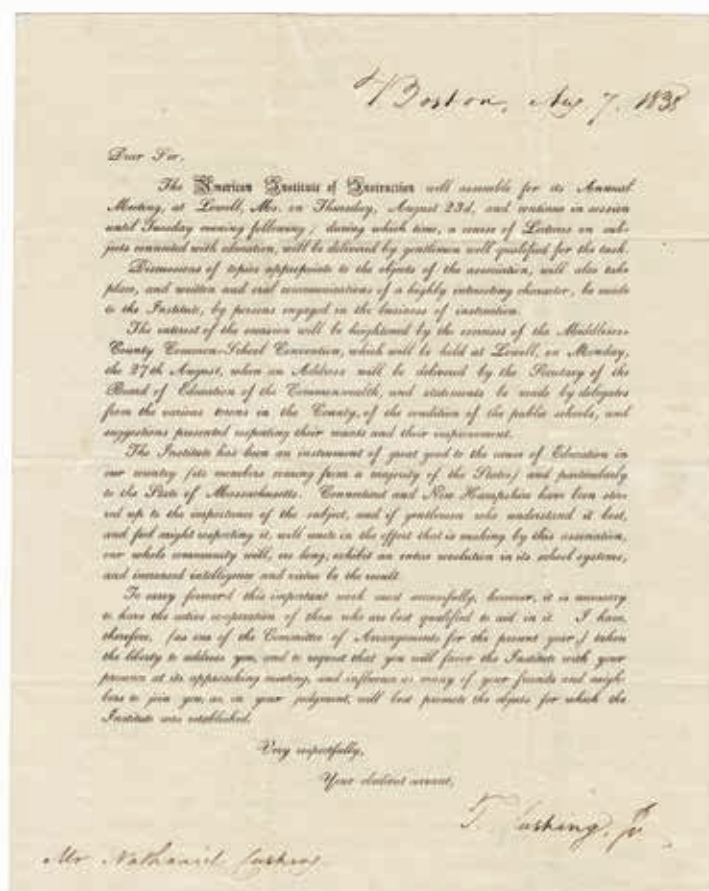 Boston, Aug 7. 1838
Dear Sir,
The American Institute of Instruction will assemble for its Annual
Meeting, at Lowell, Ms. on Thursday, August 23d, and continue in session
until Tuesday evening following; during which time, a course of Lectures on sub-
jects connected with education, will be delivered by gentlemen well qualified for the task.
Discussions of topics appropriate to the objects of the association, will also take
place, and written and oral communications of a highly interesting character, be made
to the Institute, by persons engaged in the business of instruction.
The interest of the occasion will be heightened by the exercises of the Middlesex
County Common-School Convention, which will be held at Lowell, on Monday,
the 27th August, when an Address will be delivered by the Secretary of the
Board of Education of the Commonwealth, and statements be made by delegates
from the various towns in the County, of the condition of the public schools, and
suggestions presented respecting their wants and their improvement.
The Institute has been an instrument of great good to the cause of Education in
our country (its members coming from a majority of the States) and particularly
to the State of Massachusetts. Connecticut and New Hampshire have been stir-
red up to the importance of the subject, and if gentlemen who understand it best,
and feel might respecting it, will unite in the effort that is making by this association,
our whole community will, ere long, exhibit an entire revolution in its school systems,
and increased intelligence and virtue be the result.
To carry forward this important work most successfully, however, it is necessary
to have the active cooperation of those who are best qualified to aid in it. I have,
therefore, (as one of the Committee of Arrangements for the present year,) taken
the liberty to address you, and to request that you will favor the Institute with your
presence at its approaching meeting, and influence as many of your friends and neigh-
bors to join you, as, in your judgment, will best promote the objects for which the
Institute was established.
Very respectfully,
Your obedient servant,
T. Cushing, Jr.
Mr Nathaniel Cushing